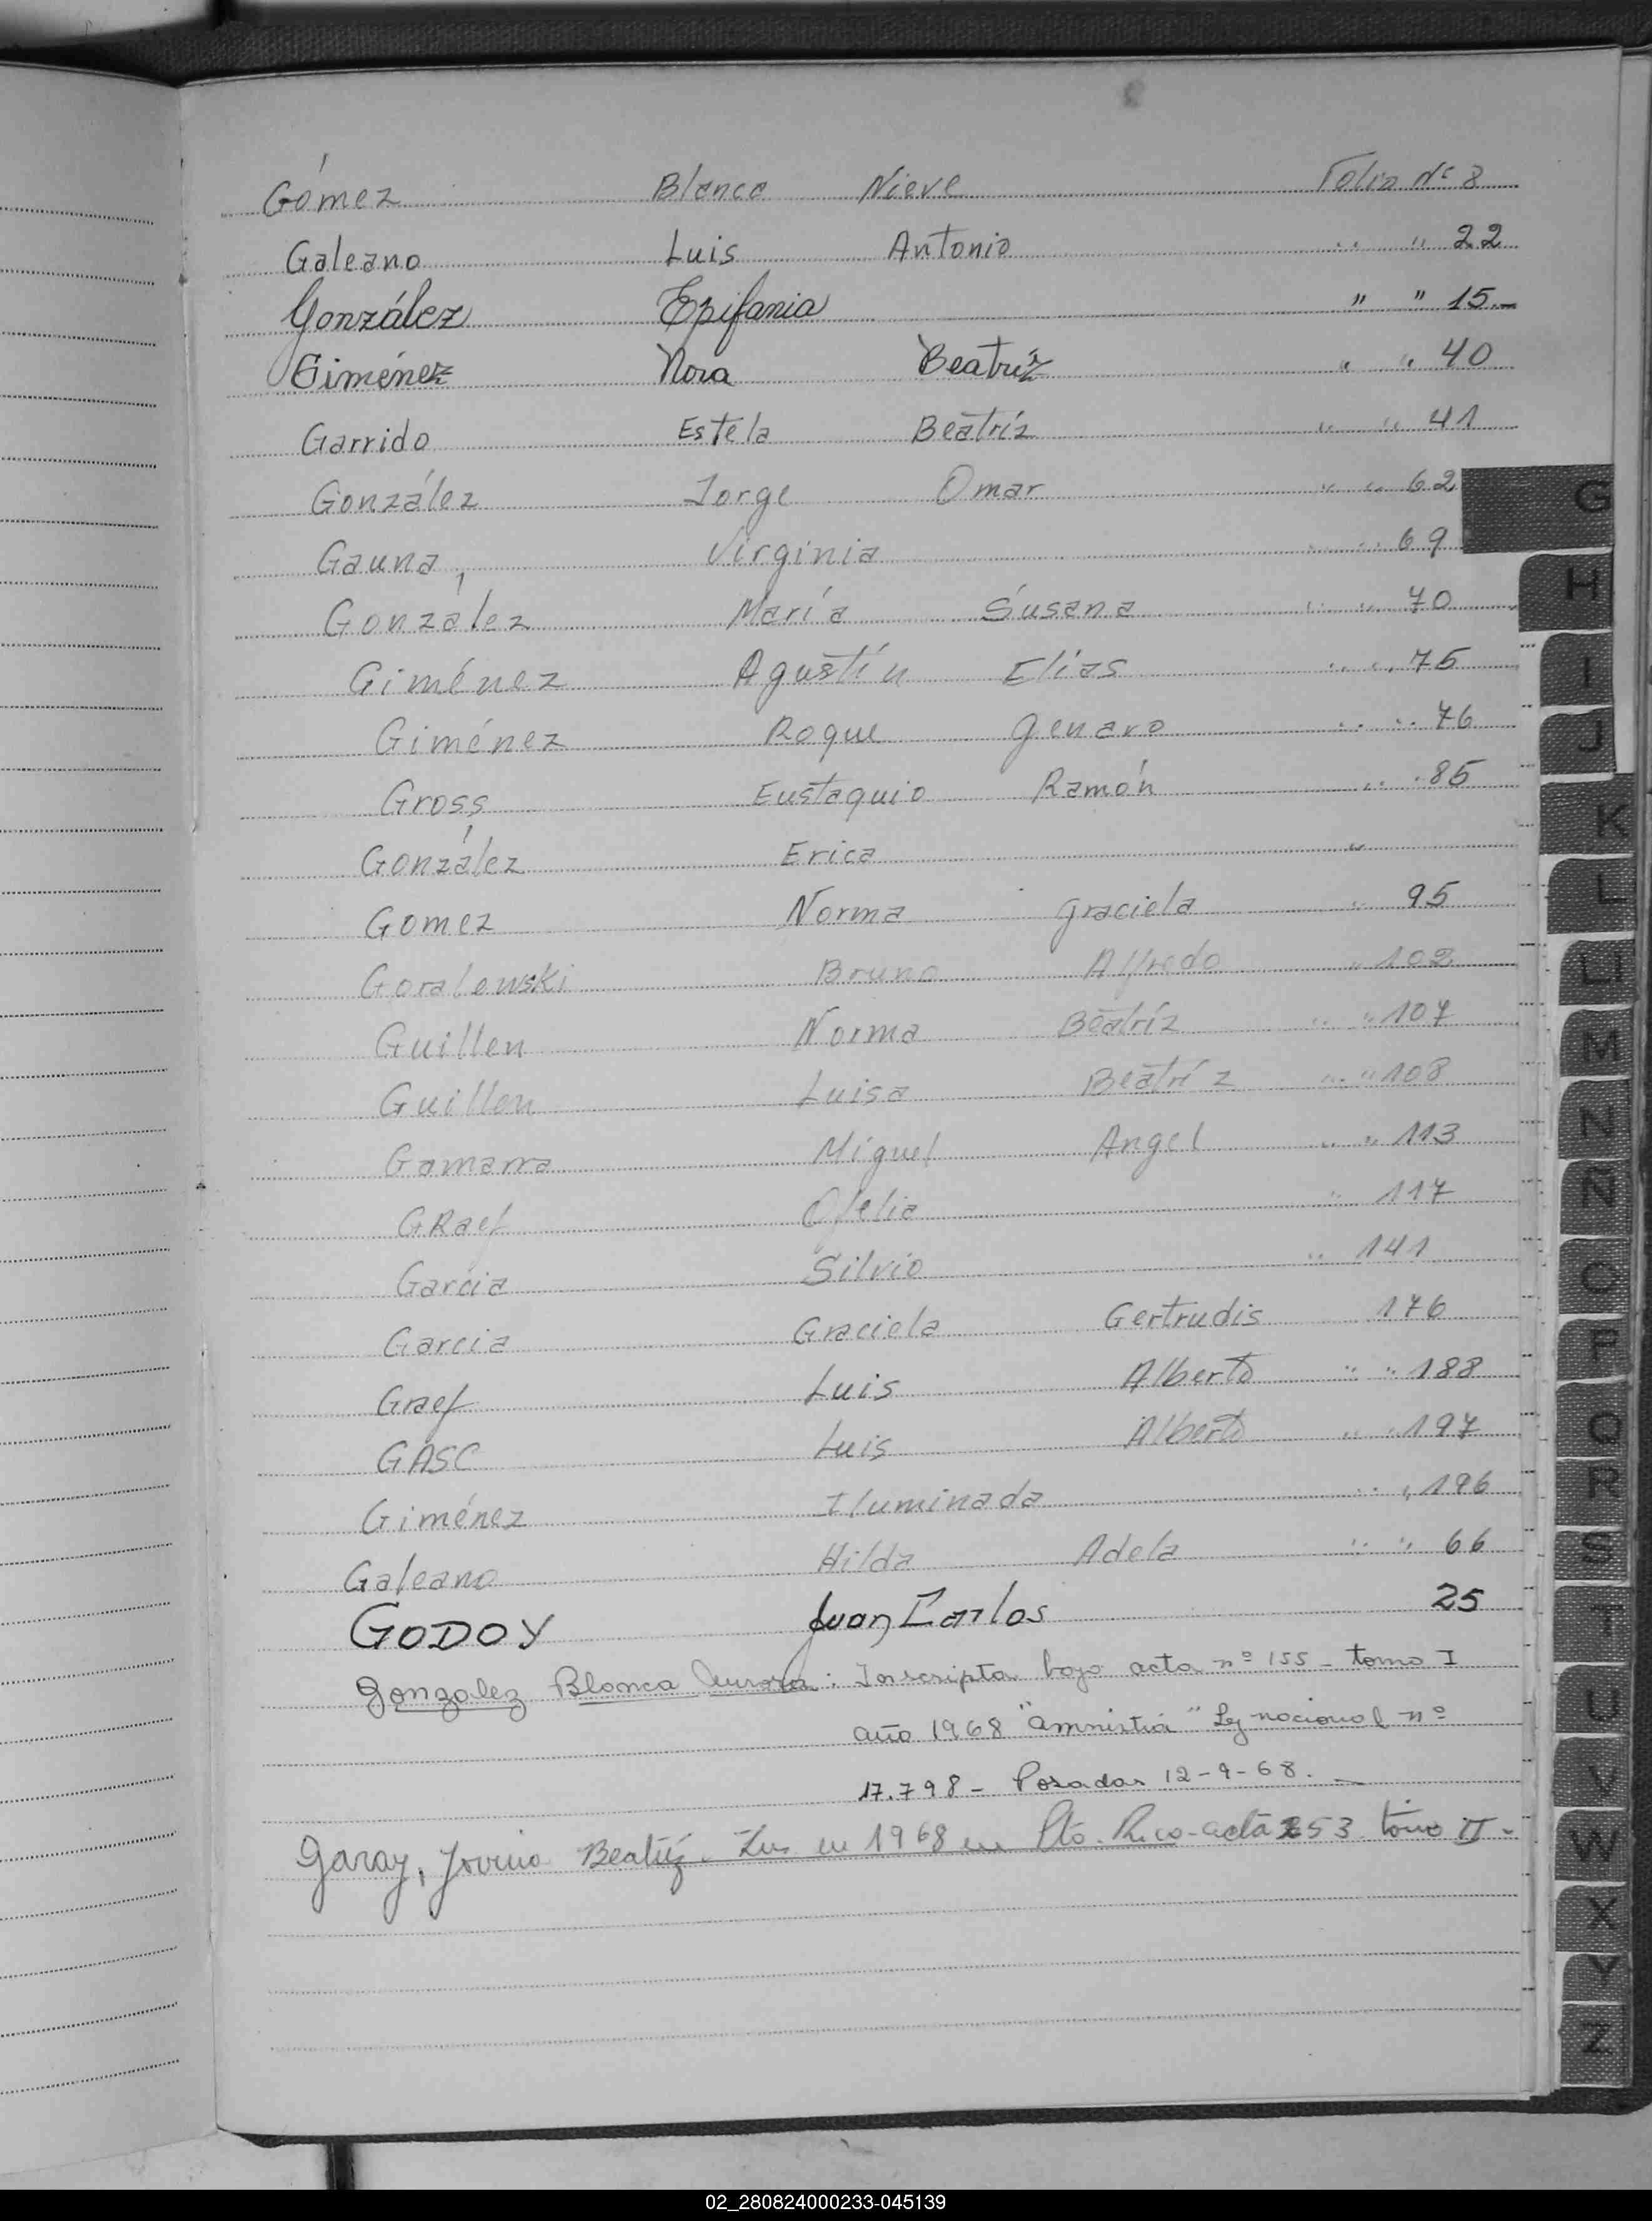 Gómez Blanca Nieve Folio Nº 8
Galeano Luis Antonio " " 22
González Epifania " " 15.-
Giménez Nora Beatríz " " 40
Garrido Estela Beatríz " " 41
González Jorge Omar " " 62
Gauna, Virginia " " 69
González María Susana " " 70
Giménez Agustín Elías " " 75
Giménez Roque Genaro " " 76
Gross Eustaquio Ramón " " 85
González Erica "
Gomez Norma Graciela " 95
Goralewski Bruno Alfredo " 102
Guillen Norma Beatríz " " 107
Guillen Luisa Beatríz " " 108
Gamarra Miguel Angel " " 113
GRaef Ofelia " 117
Garcia Silvio " 141
Garcia Graciela Gertrudis 176
Graef Luis Alberto " " 188
GASC Luis Alberto " " 197
Giménez Iluminada " " 196
Galeano Hilda Adela " " 66
GODOY Juan Carlos 25
Gonzalez Blanca Aurora: Inscripta bajo acta nº 155 - tomo I
año 1968 "amnistía" Ley nacional nº
17.798 - Posadas 12-9-68. -
Garay, Beatríz. en 1968 en Pto. Rico - acta 253 tomo II -
G
H
I
J
K
L
LL
M
N
Ñ
O
P
Q
R
S
T
U
V
W
X
Y
Z
02_280824000233-045139